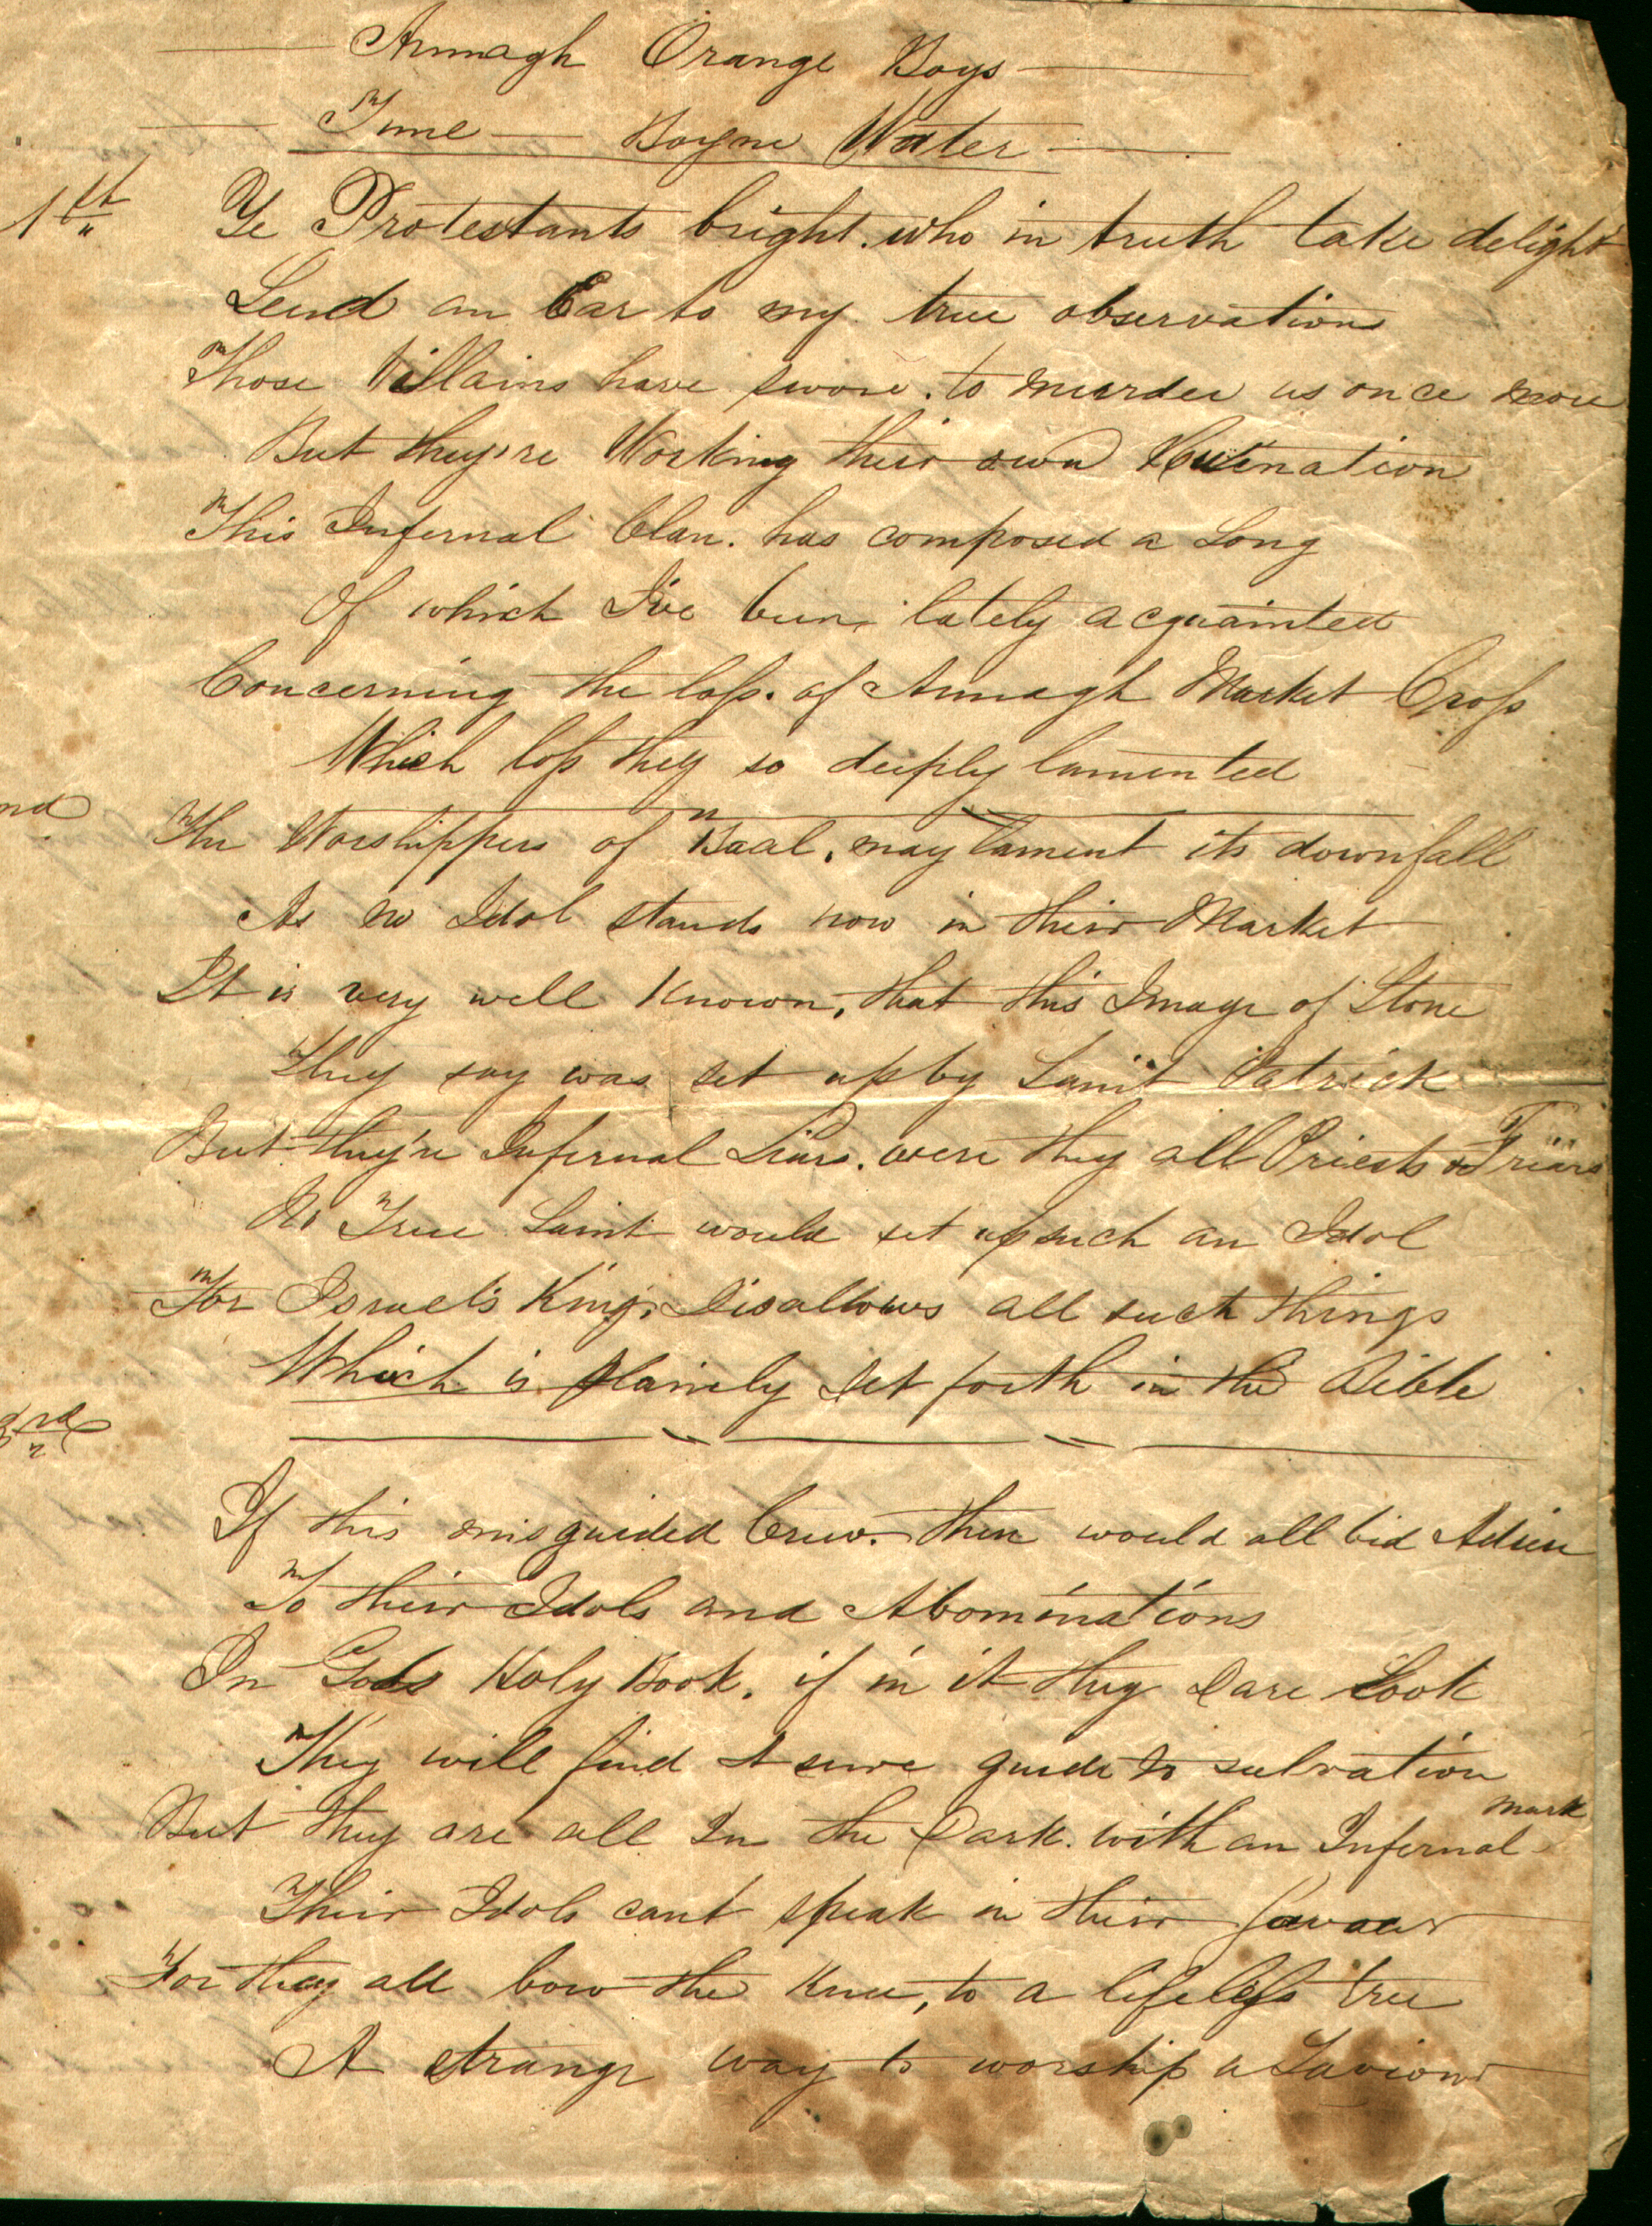 Armagh Orange Boys
Tune — Boyne Water
1st Ye Protestants bright. who in truth take delight
Lend an Ear to my true observations
Those Villains have swore. to murder us once more
But they're Working their own Ruination
This Infernal Clan. has composed a Song
Of which I've been lately acquainted
Concerning the loss. of Armagh Market Cross
Which loss they so deeply lamented
nd The Worshippers of Baal, may lament its downfall
As no Idol stands now in their Market
It is very well known, that this Image of Stone
They say was set up by Saint Patrick
But they're Infernal Liars. were they all Priests & Friars
No True Saint would set up such an Idol
For Israel's King, Disallows all such things
Which is plainely Set forth in the Bible
3rd
If this misguided Crew. then would all bid Adieu
To their Idols and Abominations
In Gods Holy Book, if in it they dare Look
They will find A sure guide to salvation
But they are all In the Dark. with an Infernal mark
Their Idols cant speak in their favour
For they all bow the Knee, to a lifeless tree
A strange way to worship a Saviour